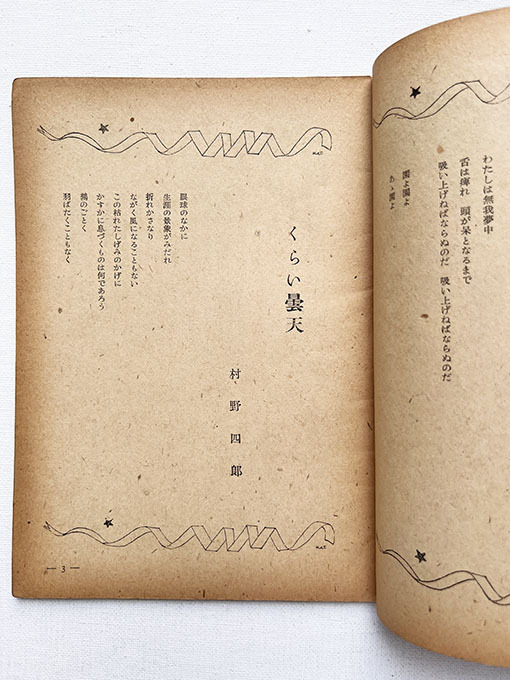 わたしは無我夢中
舌は痺れ　頭が呆となるまで
吸い上げねばならぬのだ　吸い上げねばならぬのだ
闇よ闇よ
あゝ闇よ
くらい曇天
村野四郎
眼球のなかに
生涯の景象がみだれ
折れかさなり
ながく風になることもない
この枯れたしげみのかげに
かすかに息づくものは何であろう
鵙のごとく
羽ばたくこともなく
— 3 —